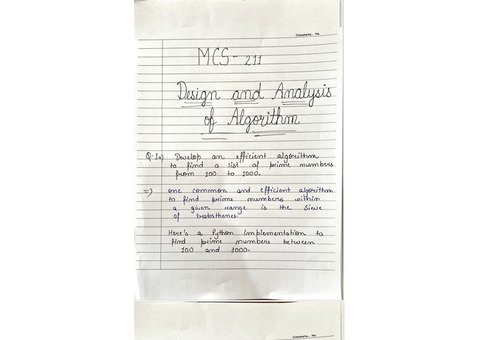 MCS-211
Design and Analysis
of Algorithm
Q.1a) Develop an efficient algorithm
to find a list of prime numbers
from 100 to 1000.
=) one common and efficient algorithm
to find prime numbers within
a given range is the Sieve
of
Here's a Python implementation to
find prime numbers between
100 and 1000.